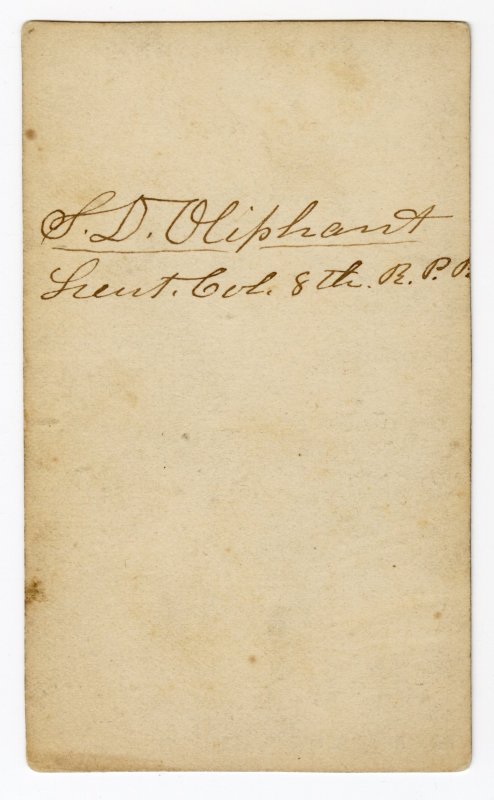 S. D. Oliphant
Lieut. Col. 8th. R. P. R.